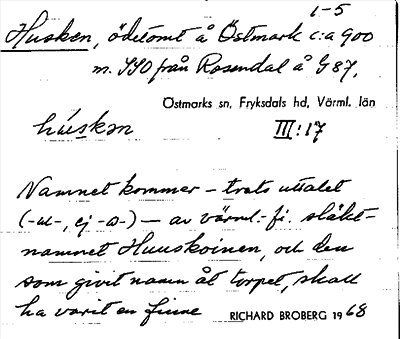 1-5
Husken, ödetomt å Östmark c:a 900
m. SSO från Rosendal å G 87,
Östmarks sn, Fryksdals hd, Värml. län
húskən III:17
Namnet kommer – trots uttalet
(-u-, ej -o-) – av värml.-fi. släkt-
namnet Huuskoinen, och den
som givit namn åt torpet, skall
ha varit en finne
RICHARD BROBERG 1968